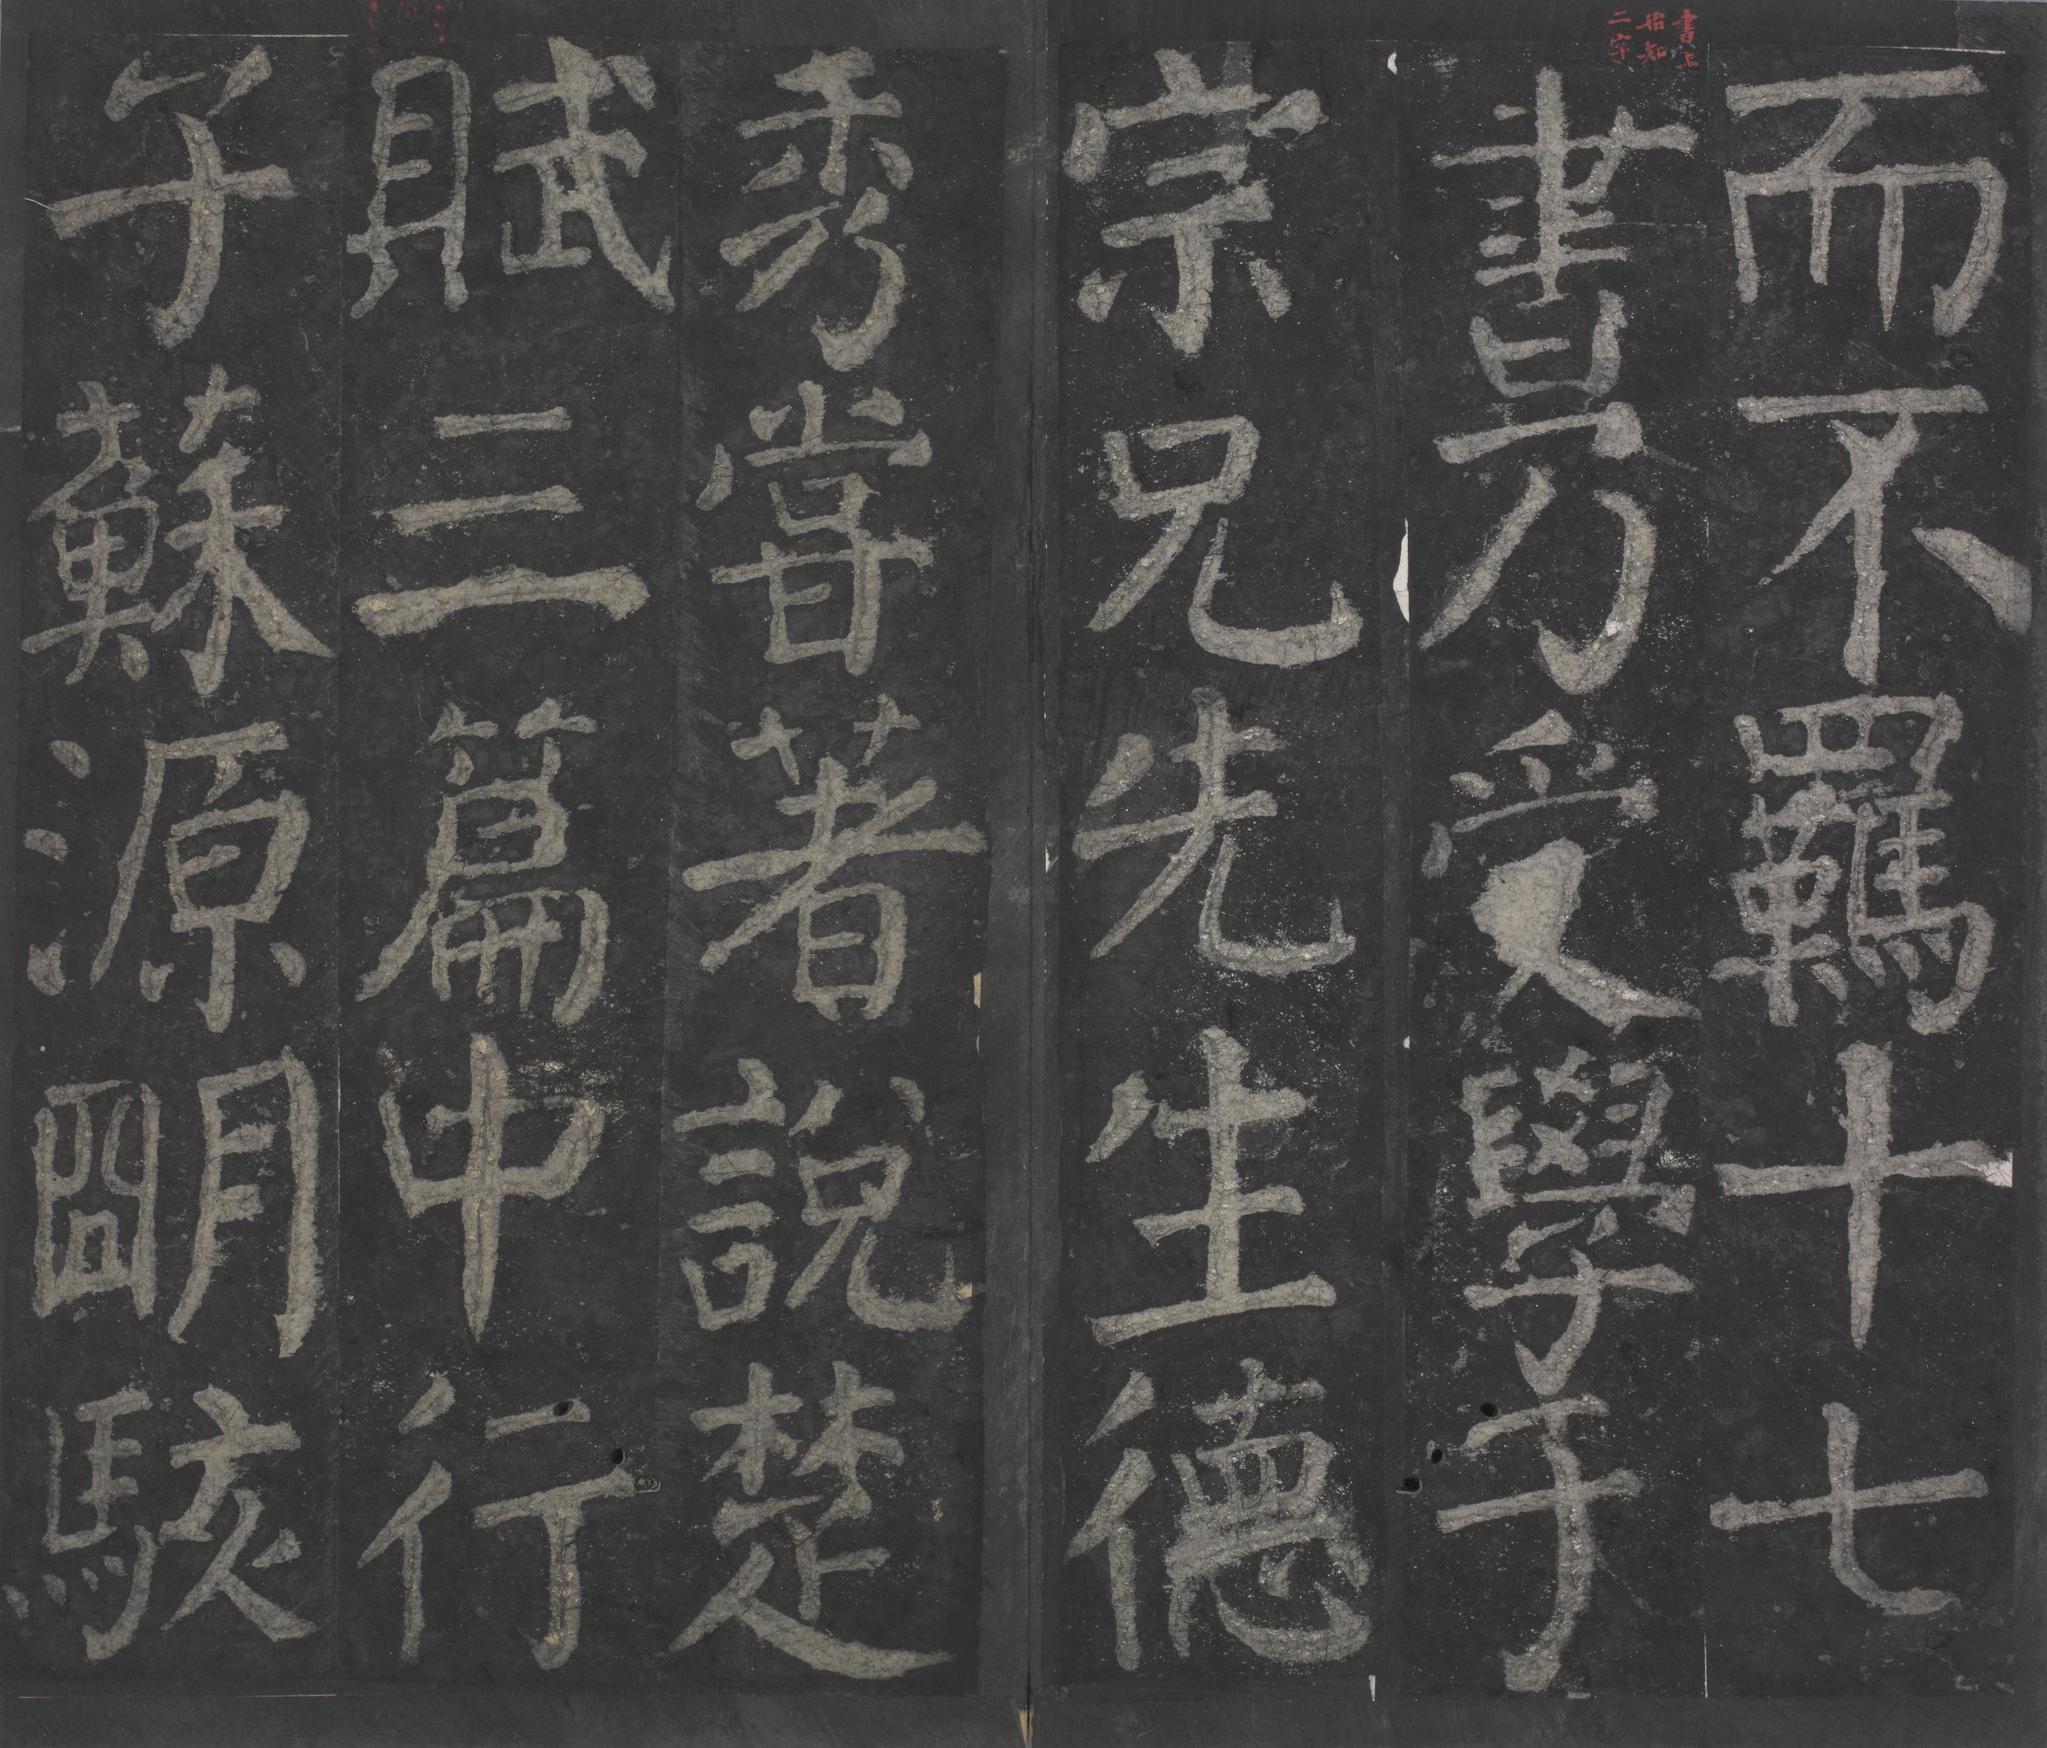 而不羈十七
書上
始知
二字
書乃受學于
宗兄先生德
秀甞著說楚
賦三篇中行
子蘇源朙駭